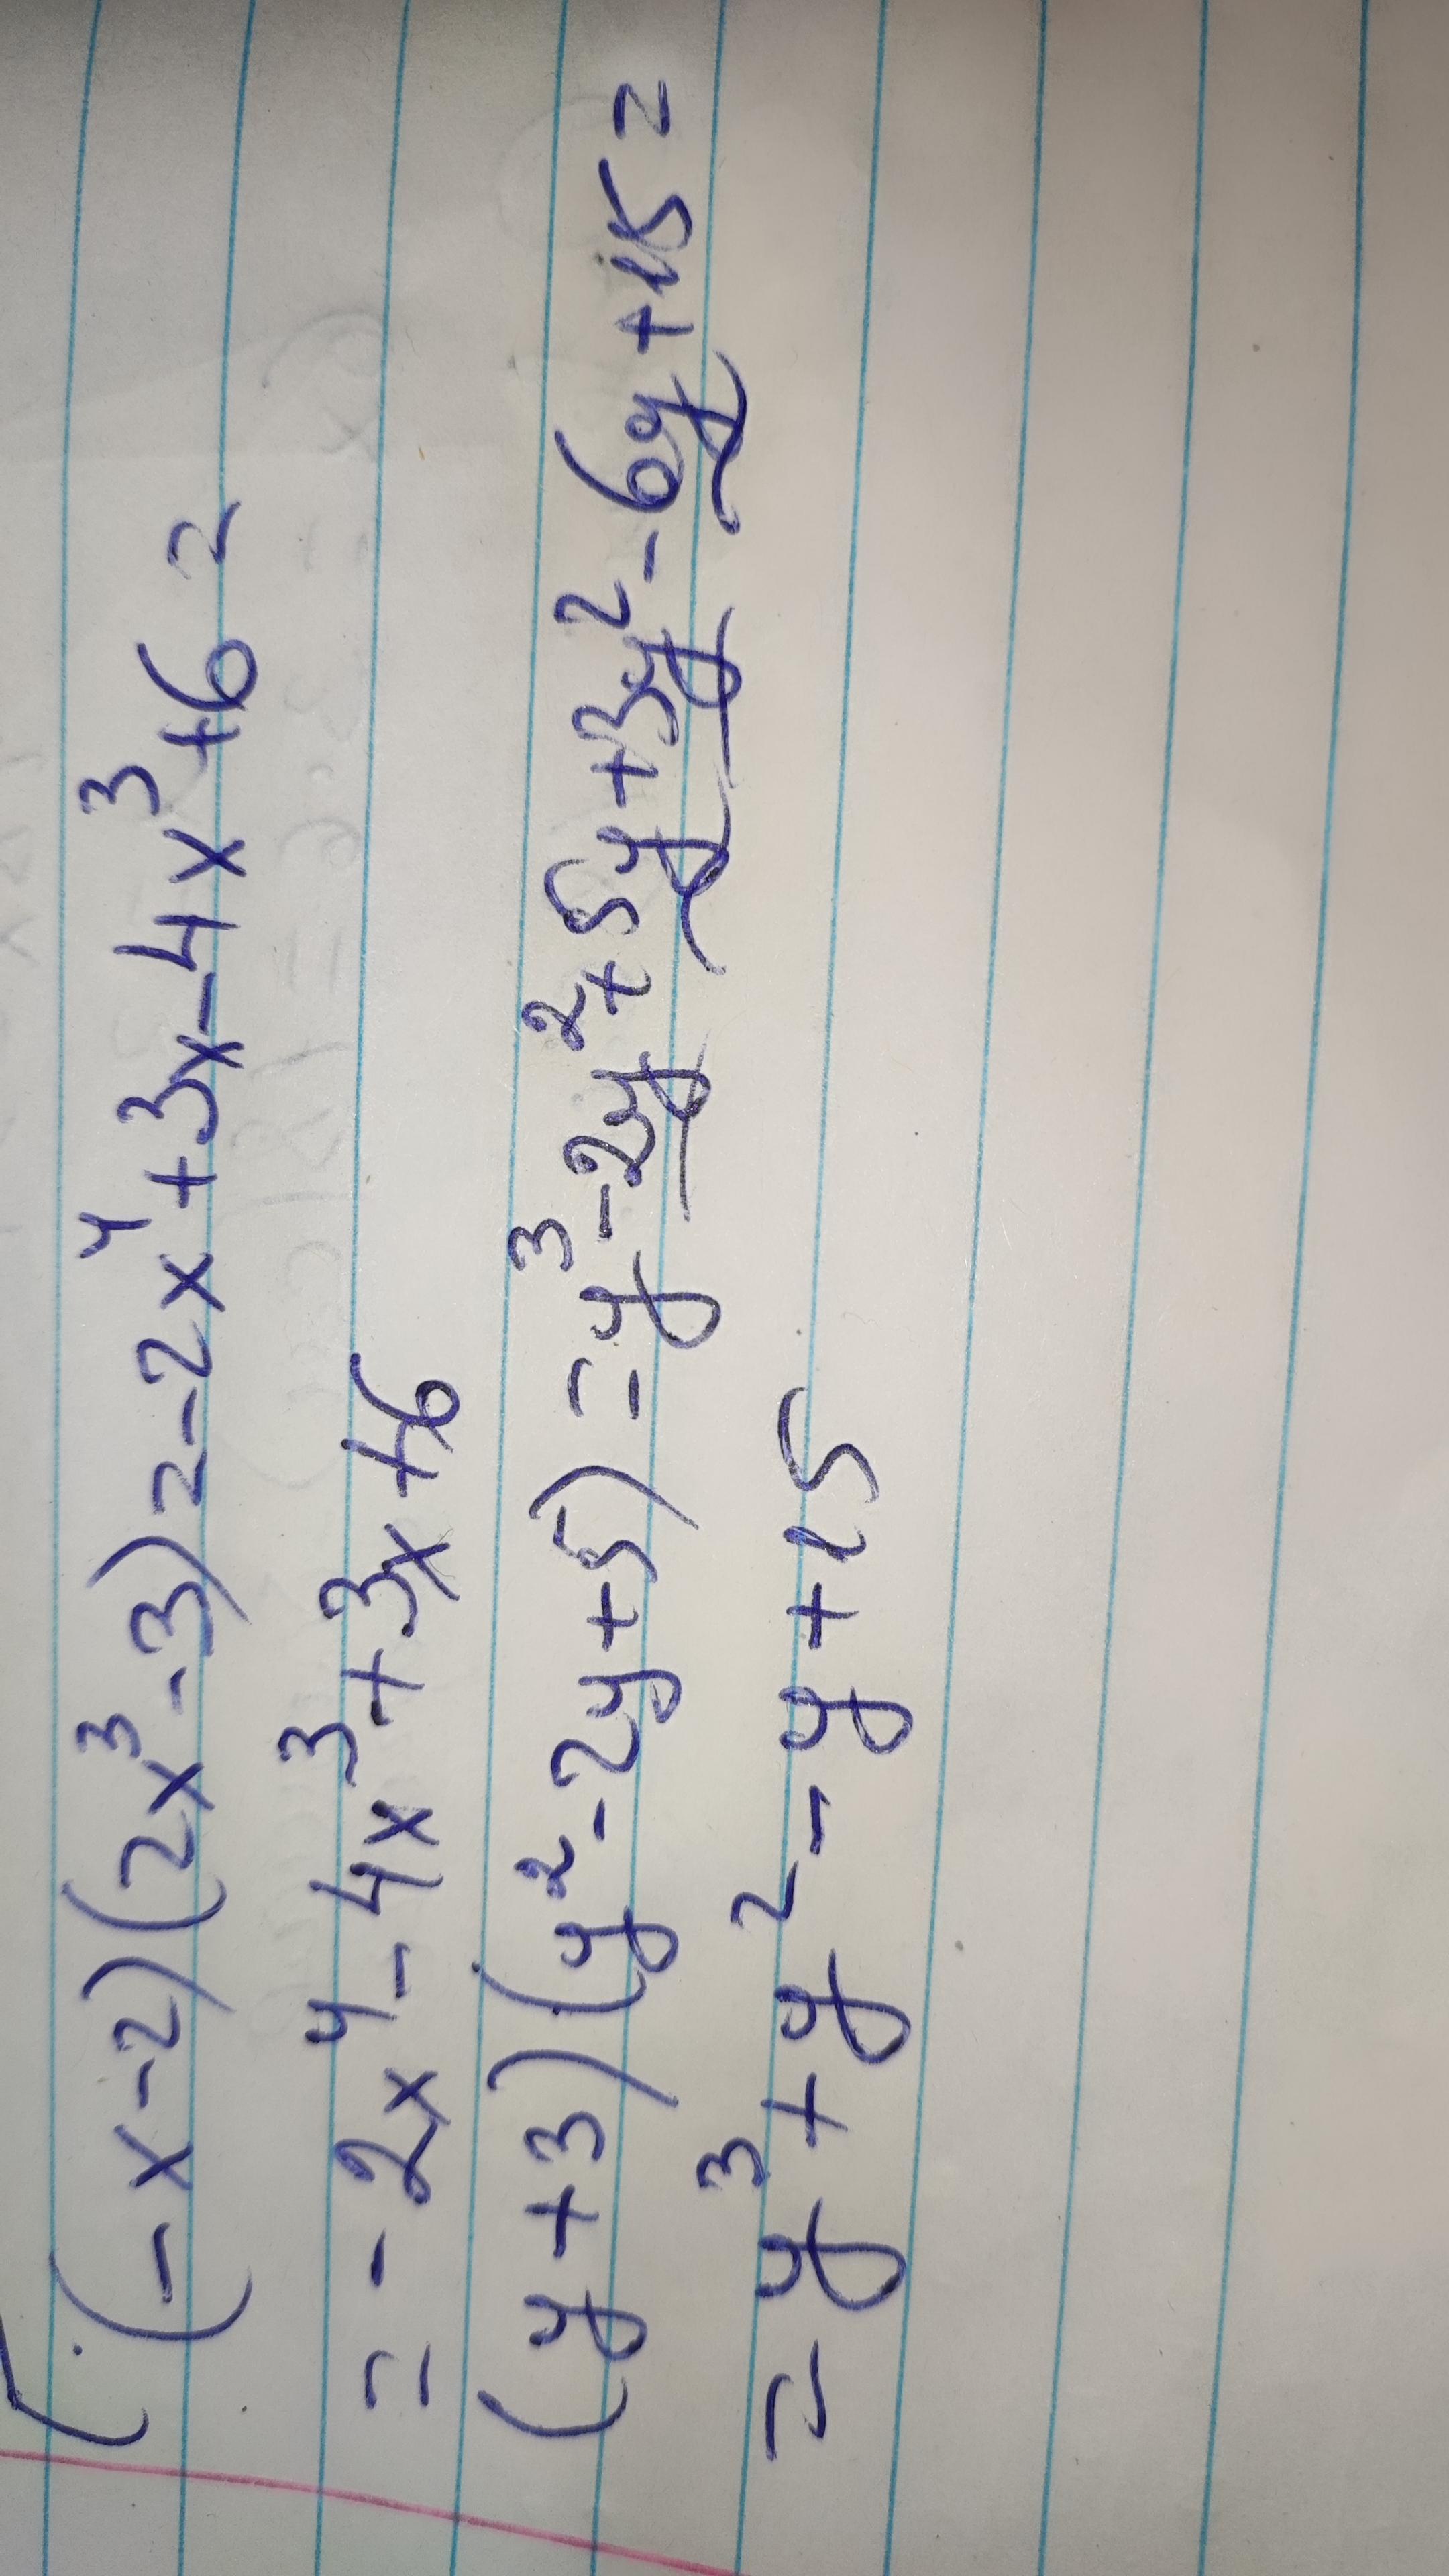 (-x-2)(2x³-3)=-2x⁴+3x-4x³+6=
=-2x⁴-4x³+3x+6
(y+3)(y²-2y+5)=y³-2y²+5y+3y²-6y+15=
=y³+y²-y+15